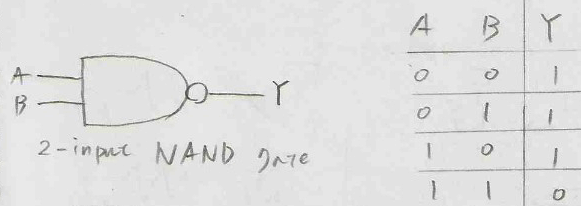 A
B
Y
2-input NAND gate
A B Y
0 0 1
0 1 1
1 0 1
1 1 0